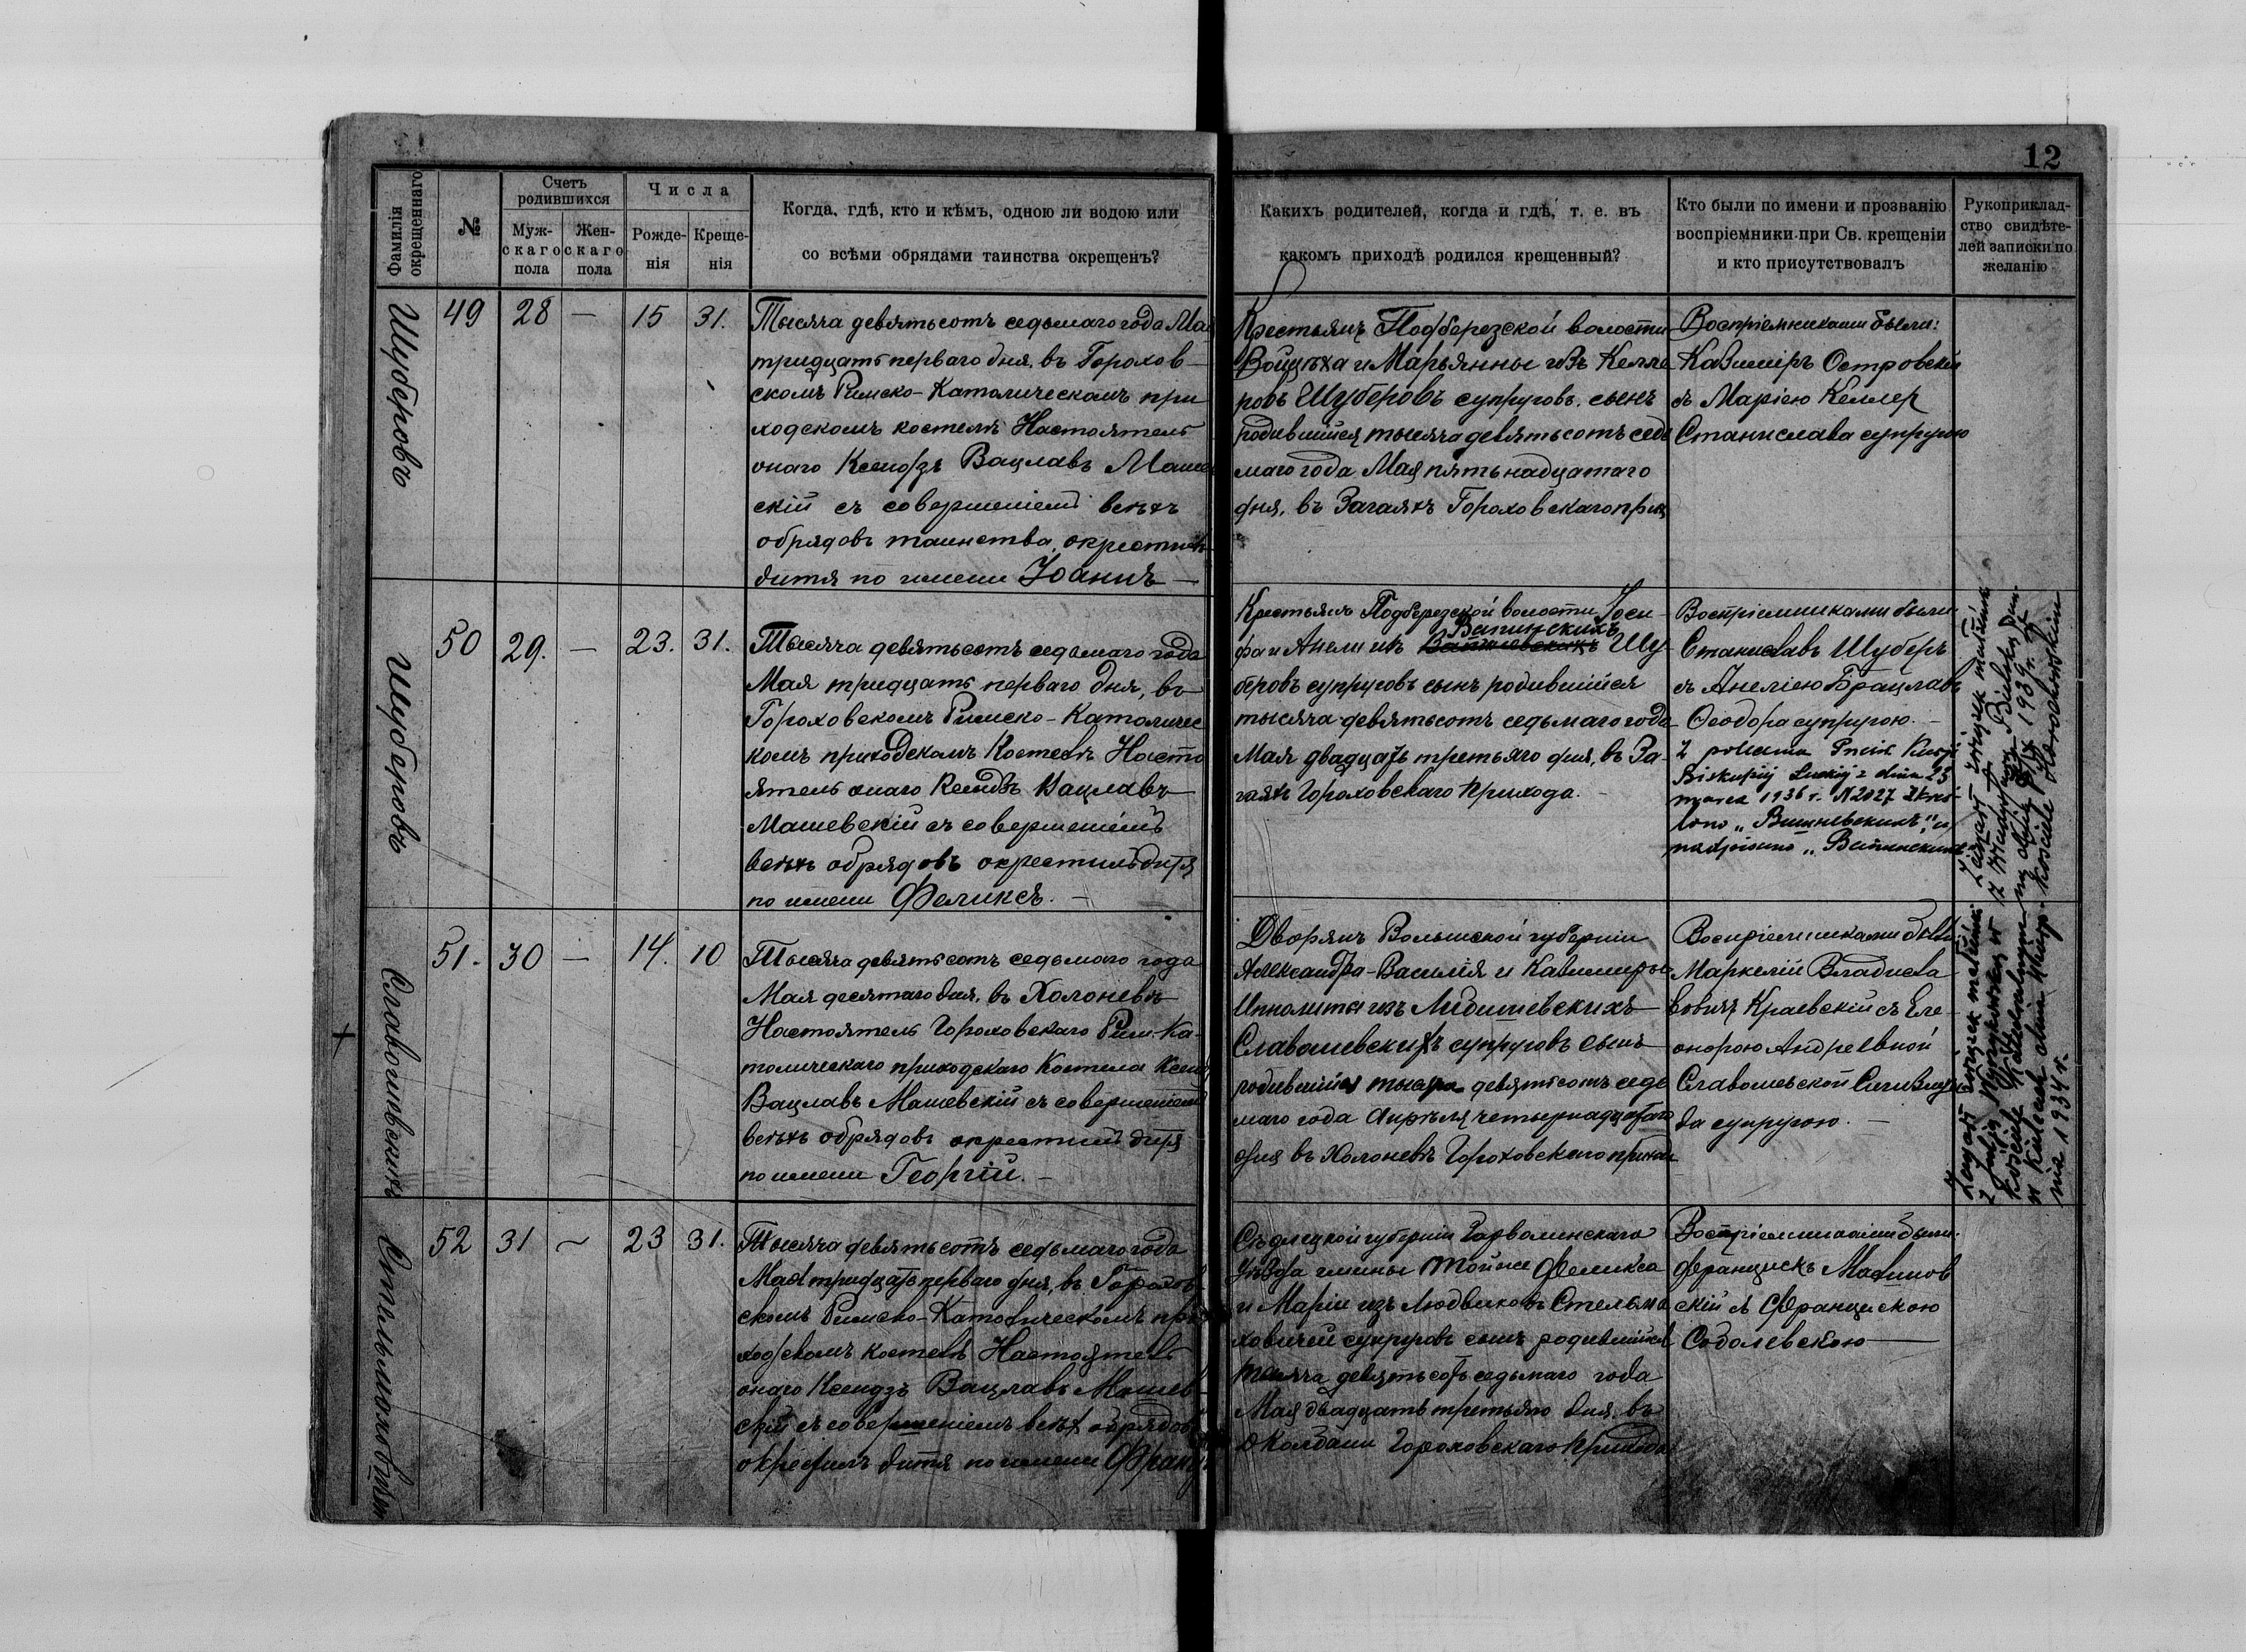 12
Фамилія окрещеннаго
№
Счетъ родившихся
Муж-скаго пола
Жен-скаго пола
Числа
Рожде-нія
Креще-нія
Когда, гдѣ, кто и кѣмъ, одною ли водою или
со всѣми обрядами таинства окрещенъ?
Какихъ родителей, когда и гдѣ, т. е. въ
какомъ приходѣ родился крещенный?
Кто были по имени и прозванію
воспріемники при Св. крещеніи
и кто присутствовалъ
Рукоприклад-
ство свидѣте-
лей записки по
желанію
Шуберовъ
49 28 — 15 31.
Тысяча девятьсотъ седьмаго года Мая
тридцать перваго дня, въ Горохов-
скомъ Римско-Католическомъ при
ходскомъ костелѣ Настоятель
онаго Ксендзъ Вацлавъ Машев
скій съ совершеніемъ всѣхъ
обрядовъ таинства окрестилъ
дитя по имени Іоаннъ —
Крестьянъ Подберезской волости
Войцѣха и Марьянны изъ Келле
ровъ Шуберовъ супруговъ сынъ
родившійся тысяча девятьсотъ седь
маго года Мая пятьнадцатаго
дня, въ Загаяхъ Гороховскаго прих
Воспріемниками были:
Казиміръ Островскій
съ Маріею Келлер
Станислава супругою
Шуберовъ
50 29. — 23. 31.
Тысяча девятьсотъ седьмаго года
Мая тридцать перваго дня, въ
Гороховскомъ Римско-Католичес
комъ приходскомъ Костелѣ Насто
ятель онаго Ксендзъ Вацлавъ
Машевскій съ совершеніемъ
всѣхъ обрядовъ окрестилъ дитя
по имени Феликсъ. —
Крестьянъ Подберезской волости Іоси-
Випинскихъ
фа и Анели изъ Шу-
беровъ супруговъ сынъ родившійся
тысяча девятьсотъ седьмаго года
Мая двадцать третьяго дня, въ За-
гаяхъ Гороховскаго прихода. —
Воспріемниками были
Станиславъ Шуберъ
съ Анеліею Брацлавъ
Ѳеодора супругою. —
Z polecenia Kurji
Biskupiej Łuckiej z dnia 23
marca 1936 r. N 2027 skreś-
lono „Вишневскихъ" и
nadpisano „
Славошевскихъ
51. 30 — 14. 10
Тысяча девятьсотъ седьмого года
Мая десятаго дня, въ Холоневѣ
Настоятель Гороховскаго Рим.-Ка-
толическаго приходскаго Костела Ксендз
Вацлавъ Машевскій съ совершеніемъ
всѣхъ обрядовъ окрестилъ дитя
по имени Георгій. —
Дворянъ Волынской губерніи
Александра-Василія и Казимиры-
Ипполиты изъ
Славошевскихъ супруговъ сынъ
родившійся тысяча девятьсотъ седь
маго года Апрѣля четырнадцатаго
дня въ Холоневѣ Гороховскаго прихода
Воспріемниками были:
Маркелій Владисла
вовичъ Краевскій съ Еле
онорою Андреевной
Славошевской Сигизмун
да супругою. —
Стельмаховичъ
52 31 ~ 23 31.
Тысяча девятьсотъ седьмаго года
Мая тридцать перваго дня, въ Горохов
скомъ Римско-Католическомъ при
ходскомъ костелѣ Настоятель
онаго Ксендзъ Вацлавъ Машев-
скій съ совершеніемъ всѣхъ обрядовъ
окрестилъ дитя по имени Франц
Сѣдлецкой губерніи Гарволинскаго
Уѣзда гмины Феликса
и Маріи изъ Людвиковъ Стельма
ховичей супруговъ сынъ родившійся
тысяча девятьсотъ седьмаго года
Мая двадцать третьяго дня, въ
Гороховскаго прихода
Воспріемниками были:
Францискъ Малинов
скій съ Францискою
Соболевскою —